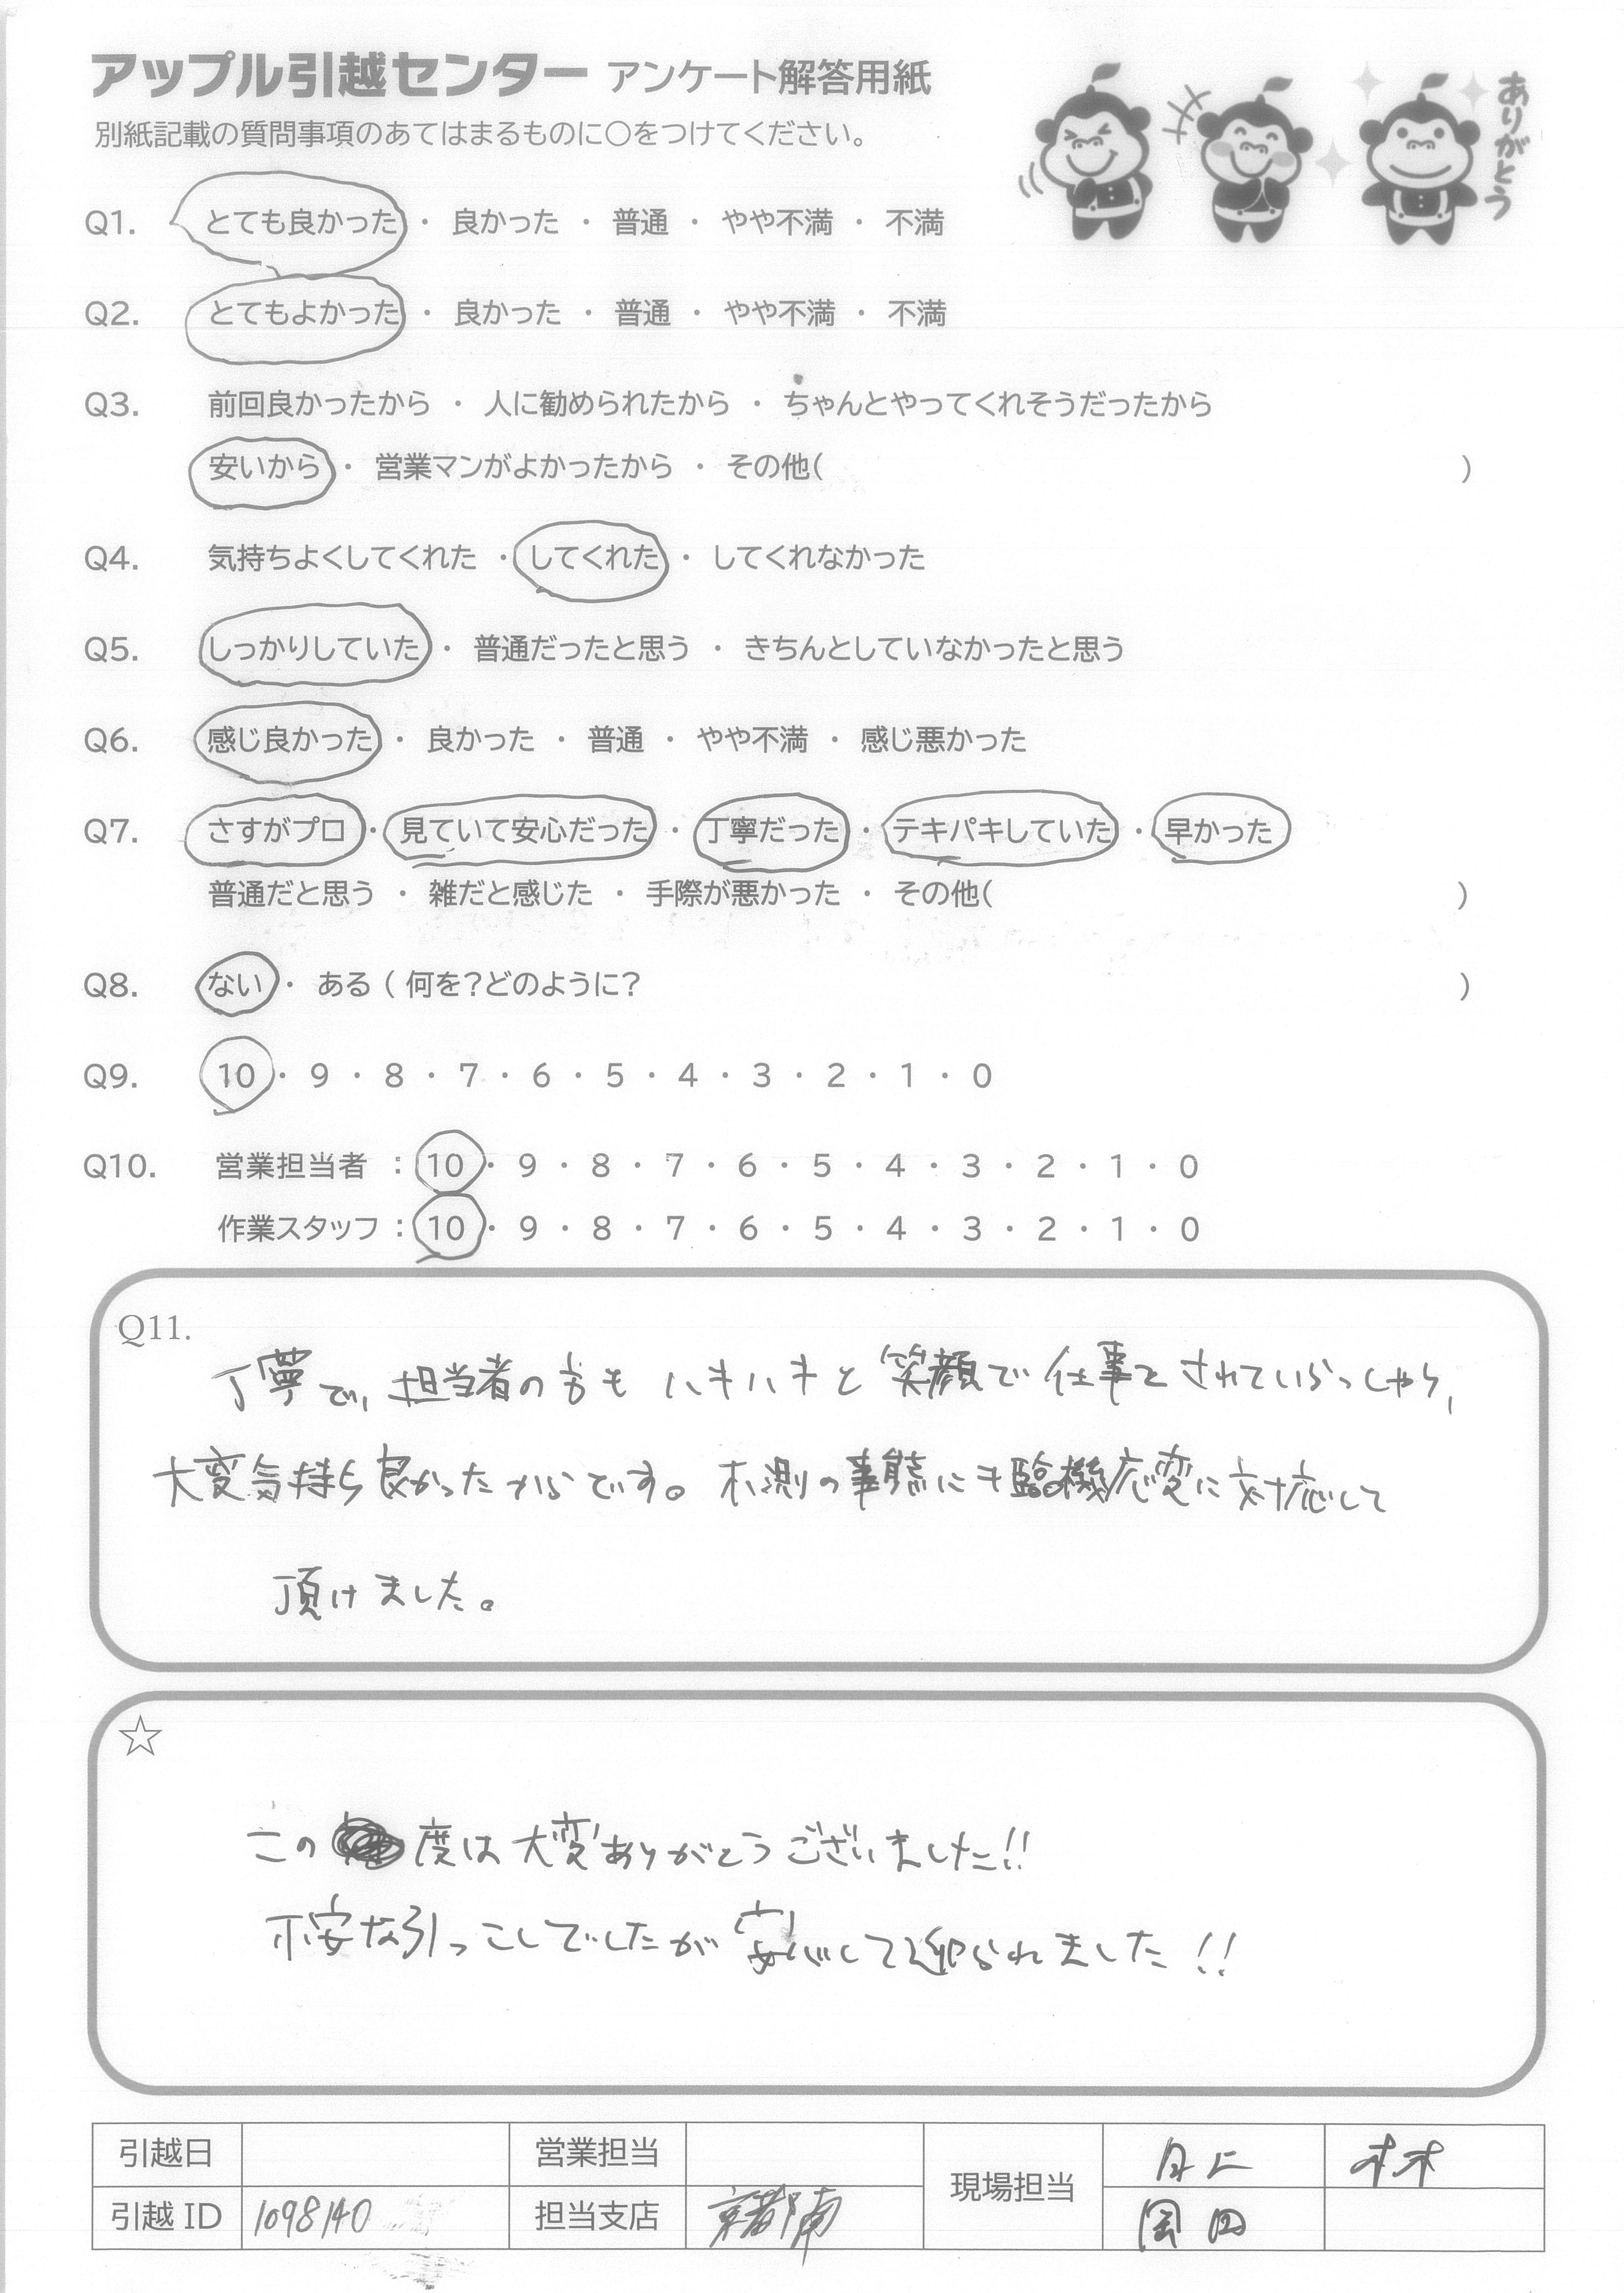 アップル引越センター アンケート解答用紙
ありがとう
別紙記載の質問事項のあてはまるものに〇をつけてください。
Q1. とても良かった ・ 良かった ・ 普通 ・ やや不満 ・ 不満
Q2. とてもよかった ・ 良かった ・ 普通 ・ やや不満 ・ 不満
Q3. 前回良かったから ・ 人に勧められたから ・ ちゃんとやってくれそうだったから
安いから ・ 営業マンがよかったから ・ その他( )
Q4. 気持ちよくしてくれた ・ してくれた ・ してくれなかった
Q5. しっかりしていた ・ 普通だったと思う ・ きちんとしていなかったと思う
Q6. 感じ良かった ・ 良かった ・ 普通 ・ やや不満 ・ 感じ悪かった
Q7. さすがプロ ・ 見ていて安心だった ・ 丁寧だった ・ テキパキしていた ・ 早かった
普通だと思う ・ 雑だと感じた ・ 手際が悪かった ・ その他( )
Q8. ない ・ ある ( 何を?どのように? )
Q9. 10 ・ 9 ・ 8 ・ 7 ・ 6 ・ 5 ・ 4 ・ 3 ・ 2 ・ 1 ・ 0
Q10. 営業担当者 : 10 ・ 9 ・ 8 ・ 7 ・ 6 ・ 5 ・ 4 ・ 3 ・ 2 ・ 1 ・ 0
作業スタッフ : 10 ・ 9 ・ 8 ・ 7 ・ 6 ・ 5 ・ 4 ・ 3 ・ 2 ・ 1 ・ 0
Q11.
丁寧で、担当者の方も ハキハキと笑顔で仕事をされていらっしゃり、
大変気持ち良かったからです。不測の事態にも臨機応変に対応して
頂けました。
☆
この 度は大変ありがとうございました!!
不安な引っこしでしたが安心して迎られました!!
引越日 営業担当 現場担当 林
引越 ID 1098140 担当支店 京都南 岡田